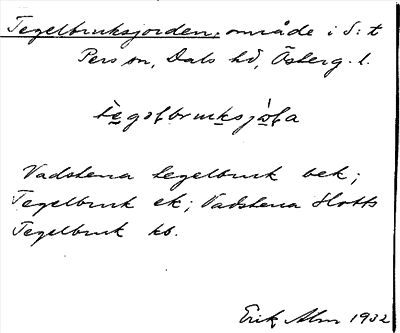 Tegelbruksjorden, område i S:t
Pers sn, Dals hd, Österg. l.
Vadstena tegelbruk bek;
Tegelbruk ek; Vadstena Slotts
Tegelbruk kb.
Erik Alm 1932